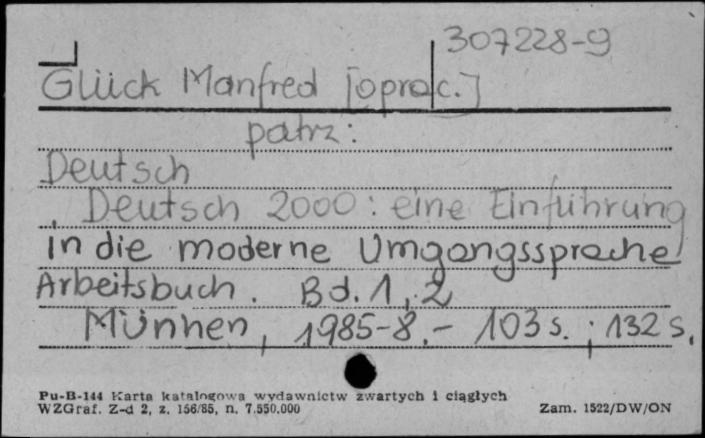 307228-9
Glück Manfred [oprac.]
patrz:
Deutsch
Deutsch 2000: eine Einführung
in die moderne Umgangssprache
Arbeitsbuch. Bd. 1, 2
Münhen, 1985-8.- 103 s. ; 132 s.
Pu-B-144 Karta katalogowa wydawnictw zwartych i ciągłych
WZGraf. Z-d 2, z. 156/85, n. 7.550.000
Zam. 1522/DW/ON